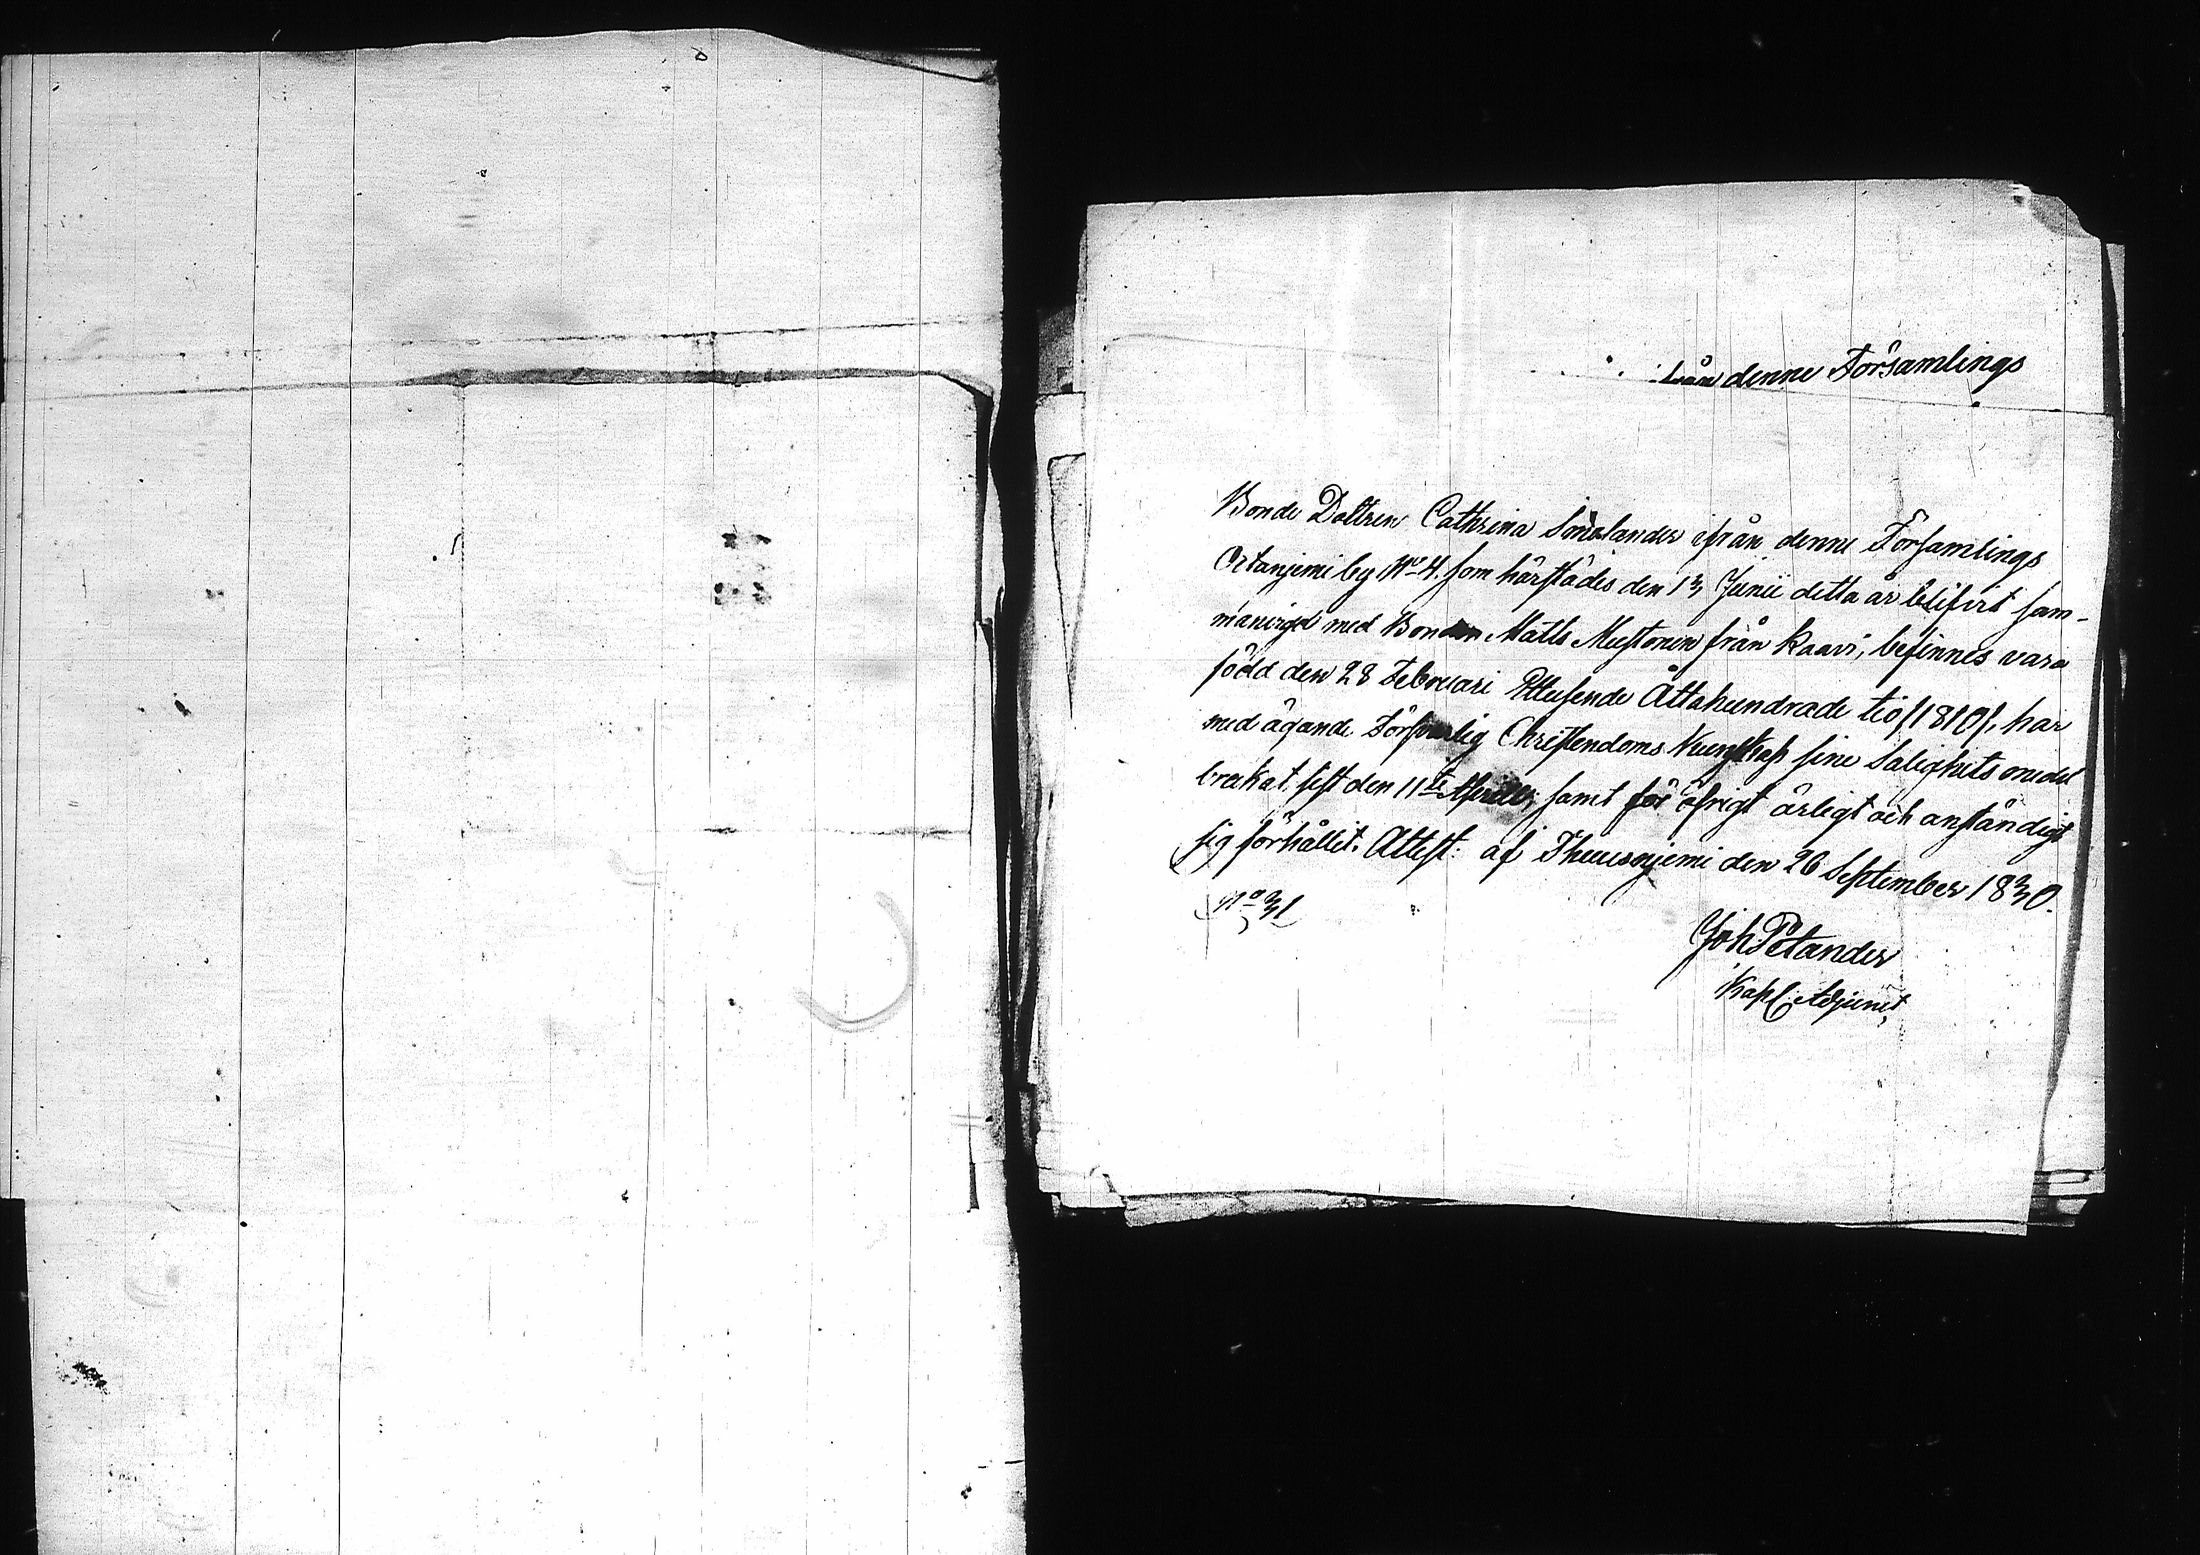 från denne Församlings
Bonde Dottren Cathrina Smolander ifrån denne Församlings
Ortanjemi by No 4, som härstädes den 13 Junii detta år blifvit sam-
manvigd med Bonden Matts Mustonen från Kaavi, befinnes vara
född den 28 Februari Ettusende Åttahundrade tio /1810/, har
med ägande Försvarlig Christendoms Kunskap sine Salighets medel
brukat sist den 11te Aprill, samt för öfrigt ärligt och anständigt
sig förhållit: Attest: af Thuusnjemi den 26 September 1830.
No 31
Joh Petander
Kapl. Adjunct,